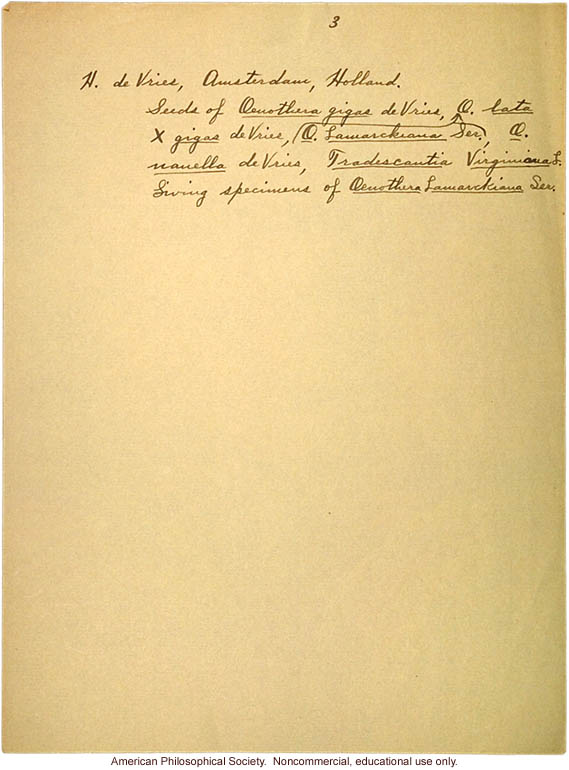 3
H. de Vries, Amsterdam, Holland.
Seeds of Oenothera gigas de Vries, O. lata
X gigas de Vries, (O. Lamarckiana Ser.), O.
nanella de Vries, Tradescantia Virginiana L.
Living specimens of Oenothera Lamarckiana Ser.
American Philosophical Society. Noncommercial, educational use only.